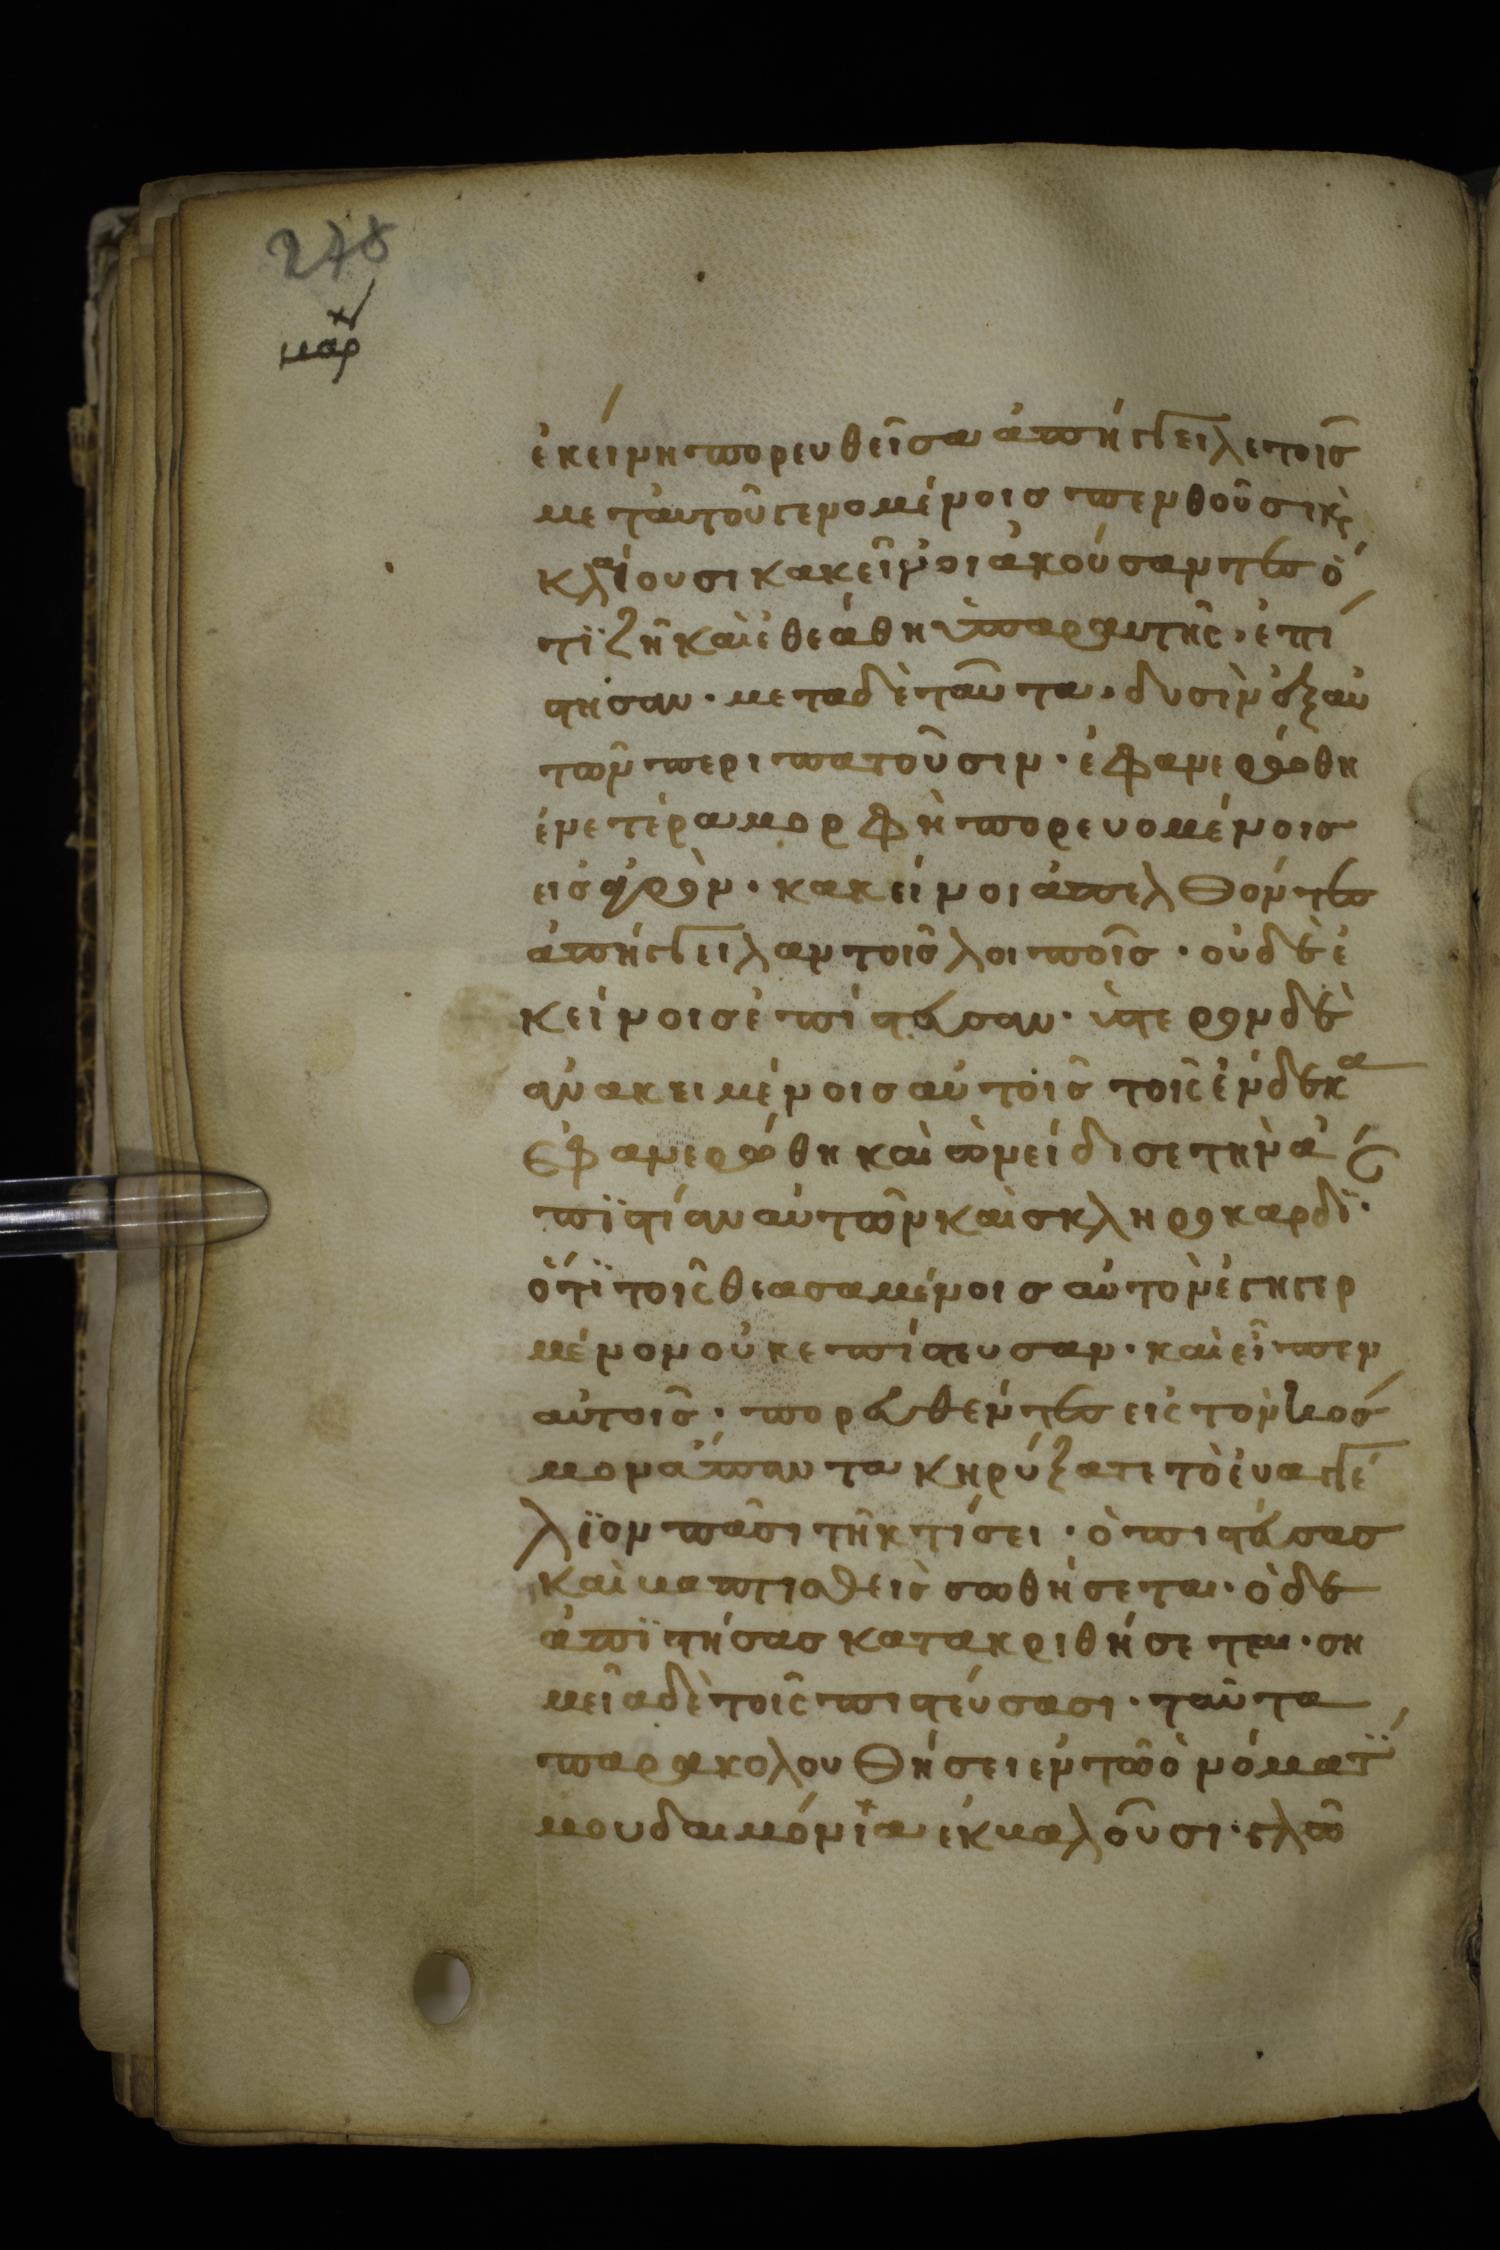 278
μαρ
ἐκείνη πορευθεῖσα ἀπήγγειλε τοῖς
μετ αὐτοῦ γενομένοις πενθοῦσι κ
κλαίουσι κακεῖνοι ἀκούσαντες ὅ
τϊ ζῆ καὶ ἐθεάθη ὑπ αρ αυτῆς · ἐπί
στησαν · μετα δὲ ταῦτα · δυσὶν ἐξ αὐ
τῶν περιπατοῦσιν · ἐφανερώθη
ἐν ετέρα μορφὴ πορευομένοις
εις ἀγρὸν · κακείνοι ἀπελθόντες
ἀπήγγειλαν τοῖς λοιποῖς · οὐδὲ ἐ
κείνοις ἐπίστευσαν · ὑστερον δὲ
ἀνακειμένοις αὐτοῖς τοῖς ἐνδεκα
ἐφανερώθη καὶ ὠνείδισε τὴν ἀ
πϊστίαν αὐτῶν καὶ σκληροκαρδϊ
ὅτϊ τοῖς θεασαμένοις αὐτὸν ἐγηγερ
μένον οὐκ επίστευσαν · καὶ εἶπεν
αὐτοῖς · πορευθέντες εἰς τὸν κόσ
μον ἅπαντα κηρύξατε τὸ ἐυαγγέ
λϊον πᾶσι τῆ κτίσει · ὁ πιστεύσας
καὶ βαπτισθεὶς σωθήσεται · ὁ δε
ἀπϊστήσας κατακριθήσεται · ση
μεῖα δὲ τοῖς πιστεύσασι · ταῦτα
παρακολουθήσει εν τῶ ὀνόματϊ
μου δαιμόνϊα ἐκβαλοῦσι · γλώ